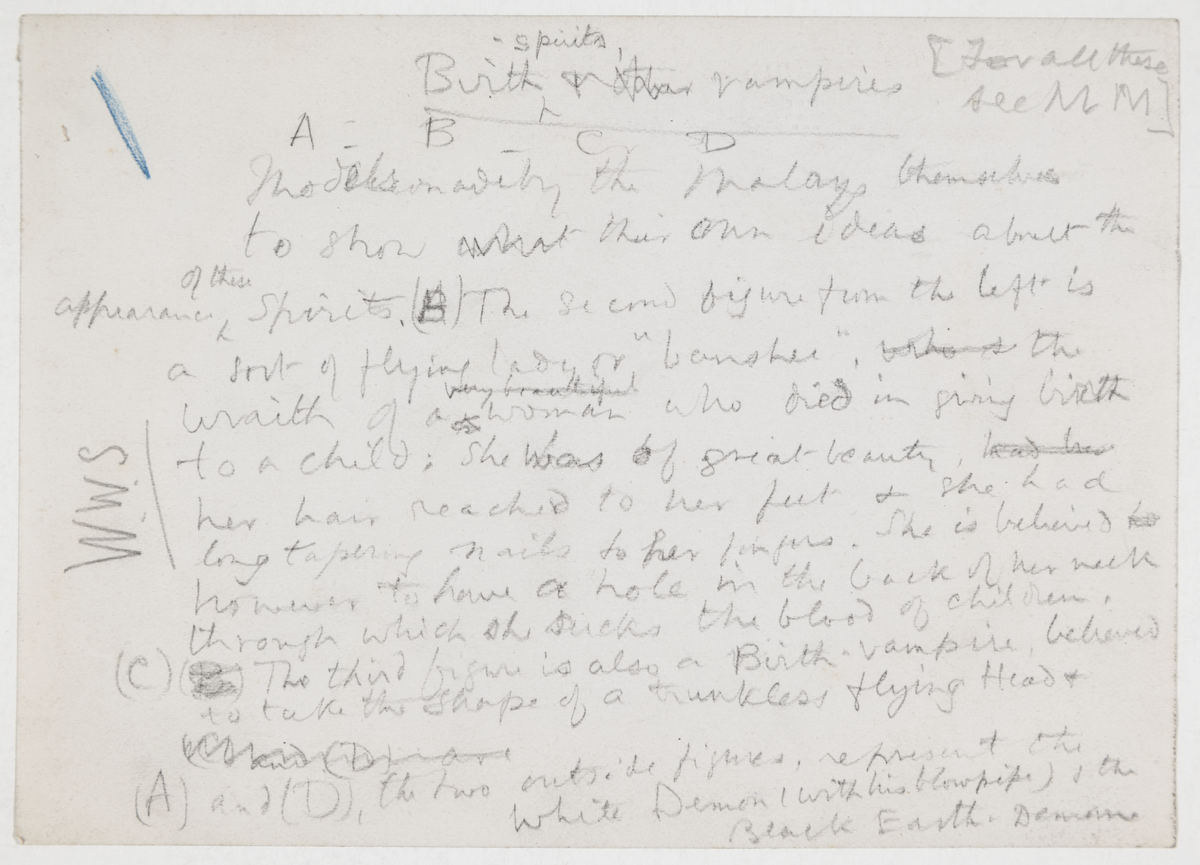 -spirits,
Birth & other vampires
[For all these
see M M]
A - B - C D
Models made by the Malays themselves
to show what their own ideas about the
of these
appearance spirits. (B) The second figure from the left is
a sort of flying lady, or "banshee", who is the
very beautiful
wraith of a woman who died in giving birth
to a child; she was of great beauty, had her
her hair reached to her feet & she had
long tapering nails to her fingers. She is believed to
however to have a hole in the back of her neck
through which she sucks the blood of children.
(C) The third figure is also a Birth-vampire, believed
to take the shape of a trunkless flying Head &
(C) and (D) are
(A) and (D), the two outside figures, represent the
White Demon (with his blowpipe) & the
Black Earth-Demon
W.W.S